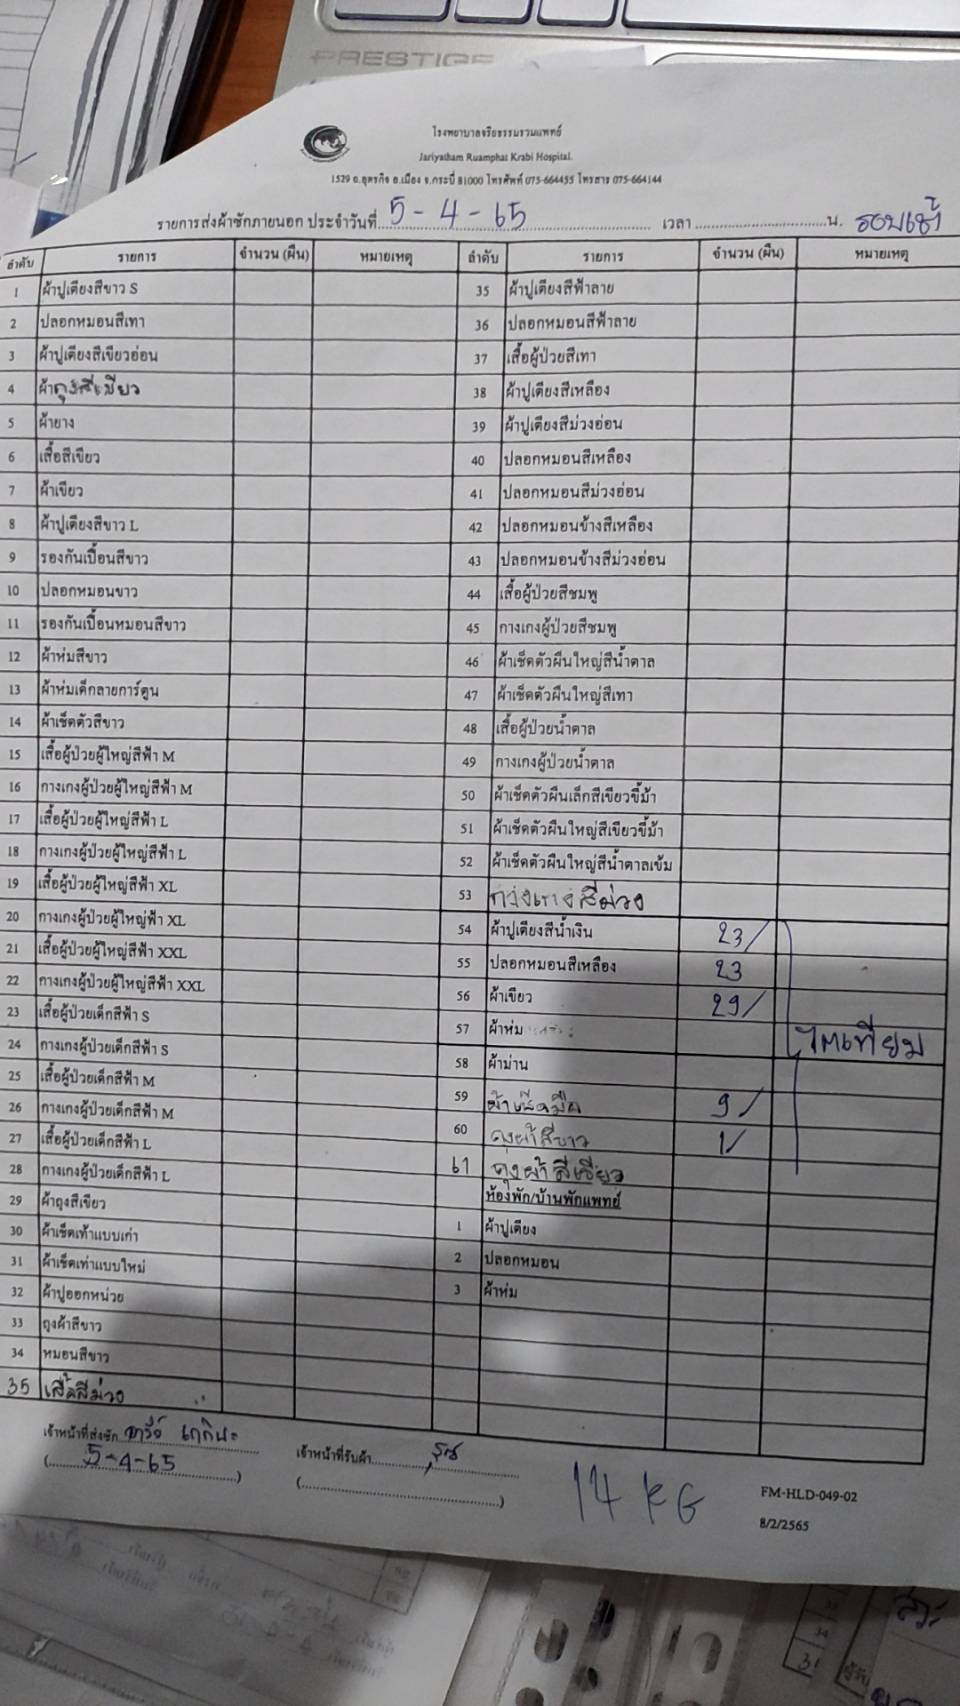 PRESTIGE
โรงพยาบาลจริยธรรมรวมแพทย์
Jariyatham Ruamphat Krabi Hospital.
1529 ถ.อุตรกิจ อ.เมือง จ.กระบี่ 81000 โทรศัพท์ 075-664455 โทรสาร 075-664144
รายการส่งผ้าซักภายนอก ประจำวันที่ 5-4-65 เวลา น. รอบเช้า
ลำดับ รายการ จำนวน (ผืน) หมายเหตุ ลำดับ รายการ จำนวน (ผืน) หมายเหตุ
1 ผ้าปูเตียงสีขาว S 35 ผ้าปูเตียงสีฟ้าลาย
2 ปลอกหมอนสีเทา 36 ปลอกหมอนสีฟ้าลาย
3 ผ้าปูเตียงสีเขียวอ่อน 37 เสื้อผู้ป่วยสีเทา
4 ผ้าถุงสีเขียว 38 ผ้าปูเตียงสีเหลือง
5 ผ้ายาง 39 ผ้าปูเตียงสีม่วงอ่อน
6 เสื้อสีเขียว 40 ปลอกหมอนสีเหลือง
7 ผ้าเขียว 41 ปลอกหมอนสีม่วงอ่อน
8 ผ้าปูเตียงสีขาว L 42 ปลอกหมอนข้างสีเหลือง
9 รองกันเปื้อนสีขาว 43 ปลอกหมอนข้างสีม่วงอ่อน
10 ปลอกหมอนขาว 44 เสื้อผู้ป่วยสีชมพู
11 รองกันเปื้อนหมอนสีขาว 45 กางเกงผู้ป่วยสีชมพู
12 ผ้าห่มสีขาว 46 ผ้าเช็ดตัวผืนใหญ่สีน้ำตาล
13 ผ้าห่มเด็กลายการ์ตูน 47 ผ้าเช็ดตัวผืนใหญ่สีเทา
14 ผ้าเช็ดตัวสีขาว 48 เสื้อผู้ป่วยน้ำตาล
15 เสื้อผู้ป่วยผู้ใหญ่สีฟ้า M 49 กางเกงผู้ป่วยน้ำตาล
16 กางเกงผู้ป่วยผู้ใหญ่สีฟ้า M 50 ผ้าเช็ดตัวผืนเล็กสีเขียวขี้ม้า
17 เสื้อผู้ป่วยผู้ใหญ่สีฟ้า L 51 ผ้าเช็ดตัวผืนใหญ่สีเขียวขี้ม้า
18 กางเกงผู้ป่วยผู้ใหญ่สีฟ้า L 52 ผ้าเช็ดตัวผืนใหญ่สีน้ำตาลเข้ม
19 เสื้อผู้ป่วยผู้ใหญ่สีฟ้า XL 53 กางเกงสีม่วง
20 กางเกงผู้ป่วยผู้ใหญ่ฟ้า XL 54 ผ้าปูเตียงสีน้ำเงิน 23/
21 เสื้อผู้ป่วยผู้ใหญ่สีฟ้า XXL 55 ปลอกหมอนสีเหลือง 23
22 กางเกงผู้ป่วยผู้ใหญ่สีฟ้า XXL 56 ผ้าเขียว 29/
23 เสื้อผู้ป่วยเด็กสีฟ้า S 57 ผ้าห่ม ไตเทียม
24 กางเกงผู้ป่วยเด็กสีฟ้า S 58 ผ้าม่าน
25 เสื้อผู้ป่วยเด็กสีฟ้า M 59 ผ้าเช็ดมือ 9/
26 กางเกงผู้ป่วยเด็กสีฟ้า M 60 ถุงผ้าสีขาว 1/
27 เสื้อผู้ป่วยเด็กสีฟ้า L 61 ถุงผ้าสีเขียว
28 กางเกงผู้ป่วยเด็กสีฟ้า L ห้องพัก/บ้านพักแพทย์
29 ผ้าถุงสีเขียว 1 ผ้าปูเตียง
30 ผ้าเช็ดเท้าแบบเก่า 2 ปลอกหมอน
31 ผ้าเช็ดเท่าแบบใหม่ 3 ผ้าห่ม
32 ผ้าปูออกหน่วย
33 ถุงผ้าสีขาว
34 หมอนสีขาว
35 เสื้อสีม่วง
เจ้าหน้าที่ส่งซัก เจ้าหน้าที่รับผ้า
(5-4-65) ( ) 14 KG
FM-HLD-049-02
8/2/2565